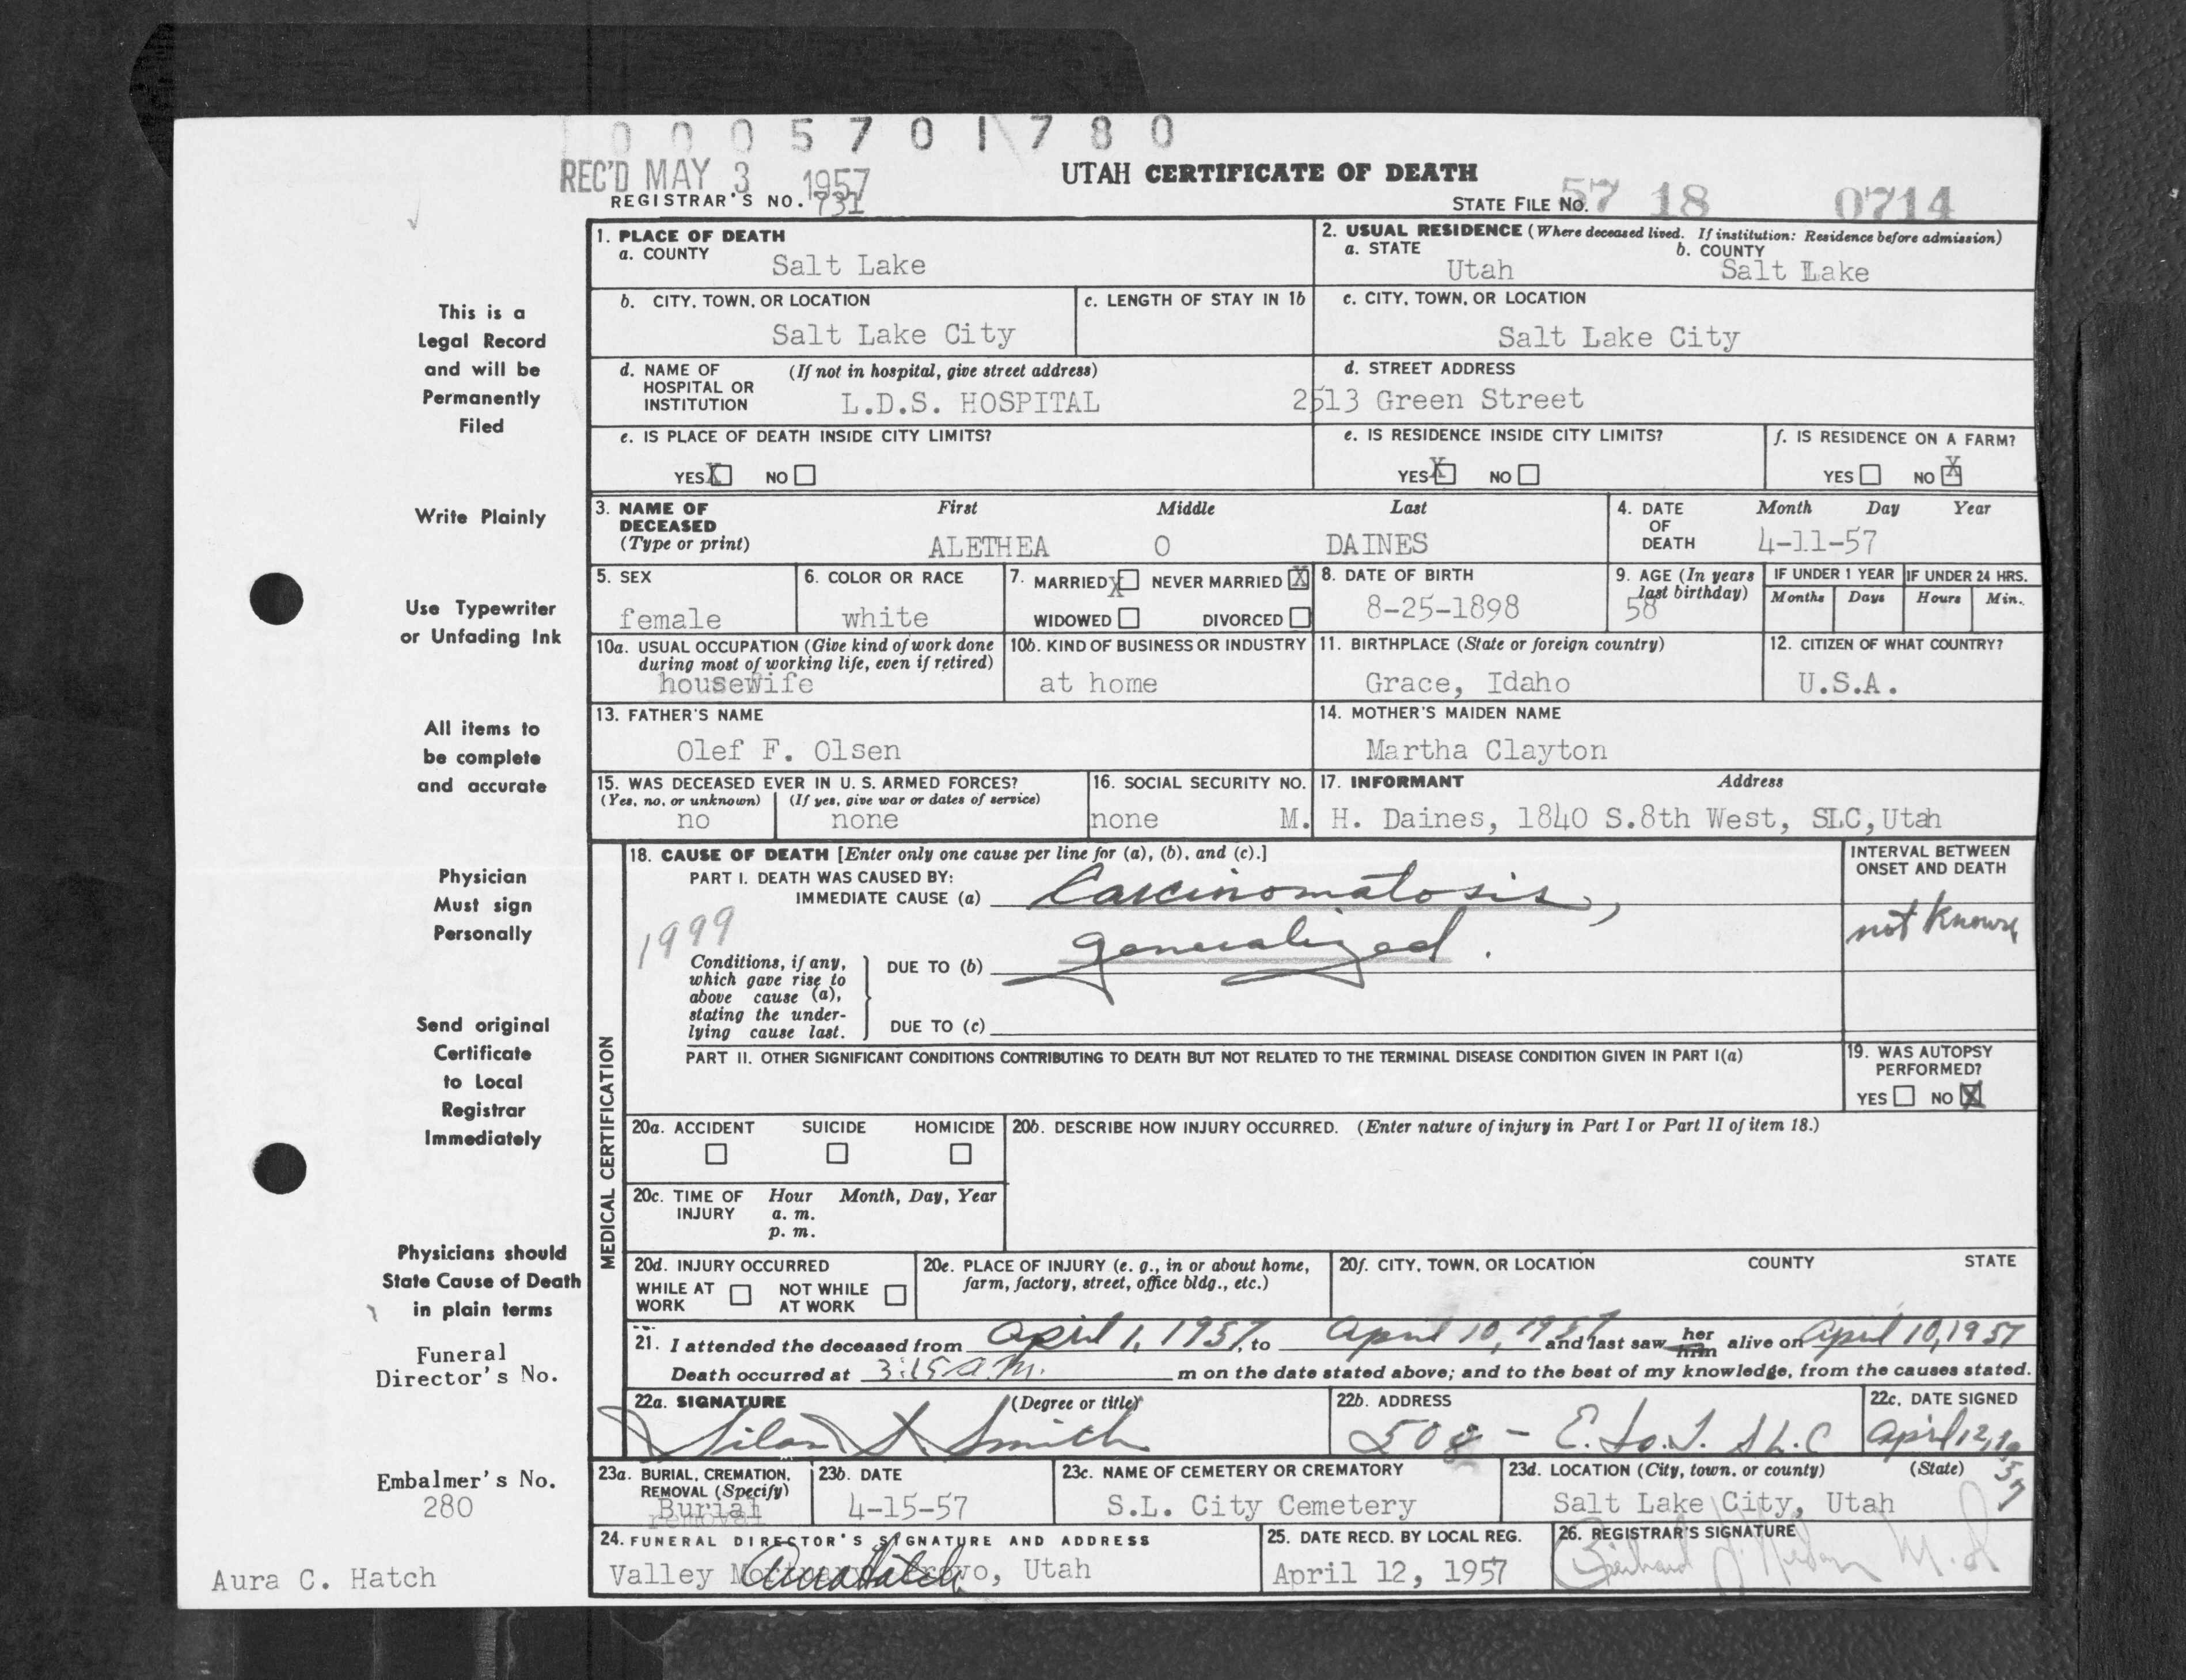 0005701780
REC'D MAY 3 1957
UTAH CERTIFICATE OF DEATH
REGISTRAR'S NO. 731
STATE FILE NO. 57 18 0714
1. PLACE OF DEATH
a. COUNTY
Salt Lake
2. USUAL RESIDENCE (Where deceased lived. If institution: Residence before admission)
a. STATE
Utah
b. COUNTY
Salt Lake
b. CITY, TOWN, OR LOCATION
Salt Lake City
c. LENGTH OF STAY IN 1b
c. CITY, TOWN, OR LOCATION
Salt Lake City
d. NAME OF HOSPITAL OR INSTITUTION
(If not in hospital, give street address)
L.D.S. HOSPITAL
d. STREET ADDRESS
2513 Green Street
e. IS PLACE OF DEATH INSIDE CITY LIMITS?
YES X NO
e. IS RESIDENCE INSIDE CITY LIMITS?
YES X NO
f. IS RESIDENCE ON A FARM?
YES NO X
3. NAME OF DECEASED (Type or print)
First Middle Last
ALETHEA O DAINES
4. DATE OF DEATH
Month Day Year
4-11-57
5. SEX
female
6. COLOR OR RACE
white
7. MARRIED X NEVER MARRIED X
WIDOWED DIVORCED
8. DATE OF BIRTH
8-25-1898
9. AGE (In years last birthday)
58
IF UNDER 1 YEAR
Months Days
IF UNDER 24 HRS.
Hours Min.
10a. USUAL OCCUPATION (Give kind of work done during most of working life, even if retired)
housewife
10b. KIND OF BUSINESS OR INDUSTRY
at home
11. BIRTHPLACE (State or foreign country)
Grace, Idaho
12. CITIZEN OF WHAT COUNTRY?
U.S.A.
13. FATHER'S NAME
Olef F. Olsen
14. MOTHER'S MAIDEN NAME
Martha Clayton
15. WAS DECEASED EVER IN U. S. ARMED FORCES?
(Yes, no, or unknown) (If yes, give war or dates of service)
no none
16. SOCIAL SECURITY NO.
none
17. INFORMANT Address
M. H. Daines, 1840 S.8th West, SLC, Utah
MEDICAL CERTIFICATION
18. CAUSE OF DEATH [Enter only one cause per line for (a), (b), and (c).]
PART I. DEATH WAS CAUSED BY:
IMMEDIATE CAUSE (a) Carcinomatosis,
1999
generalized.
Conditions, if any, which gave rise to above cause (a), stating the underlying cause last.
DUE TO (b)
DUE TO (c)
INTERVAL BETWEEN ONSET AND DEATH
not known
PART II. OTHER SIGNIFICANT CONDITIONS CONTRIBUTING TO DEATH BUT NOT RELATED TO THE TERMINAL DISEASE CONDITION GIVEN IN PART I(a)
19. WAS AUTOPSY PERFORMED?
YES NO X
20a. ACCIDENT SUICIDE HOMICIDE
20b. DESCRIBE HOW INJURY OCCURRED. (Enter nature of injury in Part I or Part II of item 18.)
20c. TIME OF INJURY
Hour Month, Day, Year
a. m.
p. m.
20d. INJURY OCCURRED
WHILE AT WORK NOT WHILE AT WORK
20e. PLACE OF INJURY (e. g., in or about home, farm, factory, street, office bldg., etc.)
20f. CITY, TOWN, OR LOCATION COUNTY STATE
21. I attended the deceased from April 1, 1957, to April 10, 1957 and last saw her him alive on April 10, 1957
Death occurred at 3:15 a.m. m on the date stated above; and to the best of my knowledge, from the causes stated.
22a. SIGNATURE (Degree or title)
Silas S. Smith
22b. ADDRESS
508 - E. So. T. S L. C
22c. DATE SIGNED
April 12, 1957
23a. BURIAL, CREMATION, REMOVAL (Specify)
Burial
removal
23b. DATE
4-15-57
23c. NAME OF CEMETERY OR CREMATORY
S.L. City Cemetery
23d. LOCATION (City, town, or county) (State)
Salt Lake City, Utah
24. FUNERAL DIRECTOR'S SIGNATURE AND ADDRESS
Valley Mortuary Provo, Utah
Aura Hatch
25. DATE RECD. BY LOCAL REG.
April 12, 1957
26. REGISTRAR'S SIGNATURE
M. D
This is a
Legal Record
and will be
Permanently
Filed
Write Plainly
Use Typewriter
or Unfading Ink
All items to
be complete
and accurate
Physician
Must sign
Personally
Send original
Certificate
to Local
Registrar
Immediately
Physicians should
State Cause of Death
in plain terms
Funeral
Director's No.
Embalmer's No.
280
Aura C. Hatch